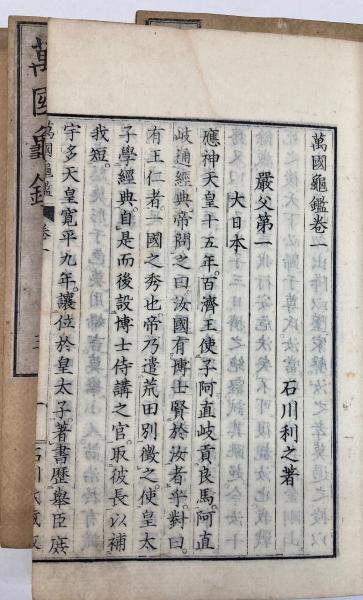 萬國龜鑑卷一
石川利之著
嚴父第一
大日本
應神天皇十五年。百濟王使子阿直岐貢良馬。阿直
岐通經典。帝問之曰。汝國有博士賢於汝者乎。對曰。
有王仁者。一國之秀也。帝乃遣荒田別徵之。使皇太
子學經典。自是而後設博士侍講之官。取彼長以補
我短。
宇多天皇寬平九年。讓位於皇太子。著書歷舉臣庶
萬國龜鑑 卷一
萬國龜鑑